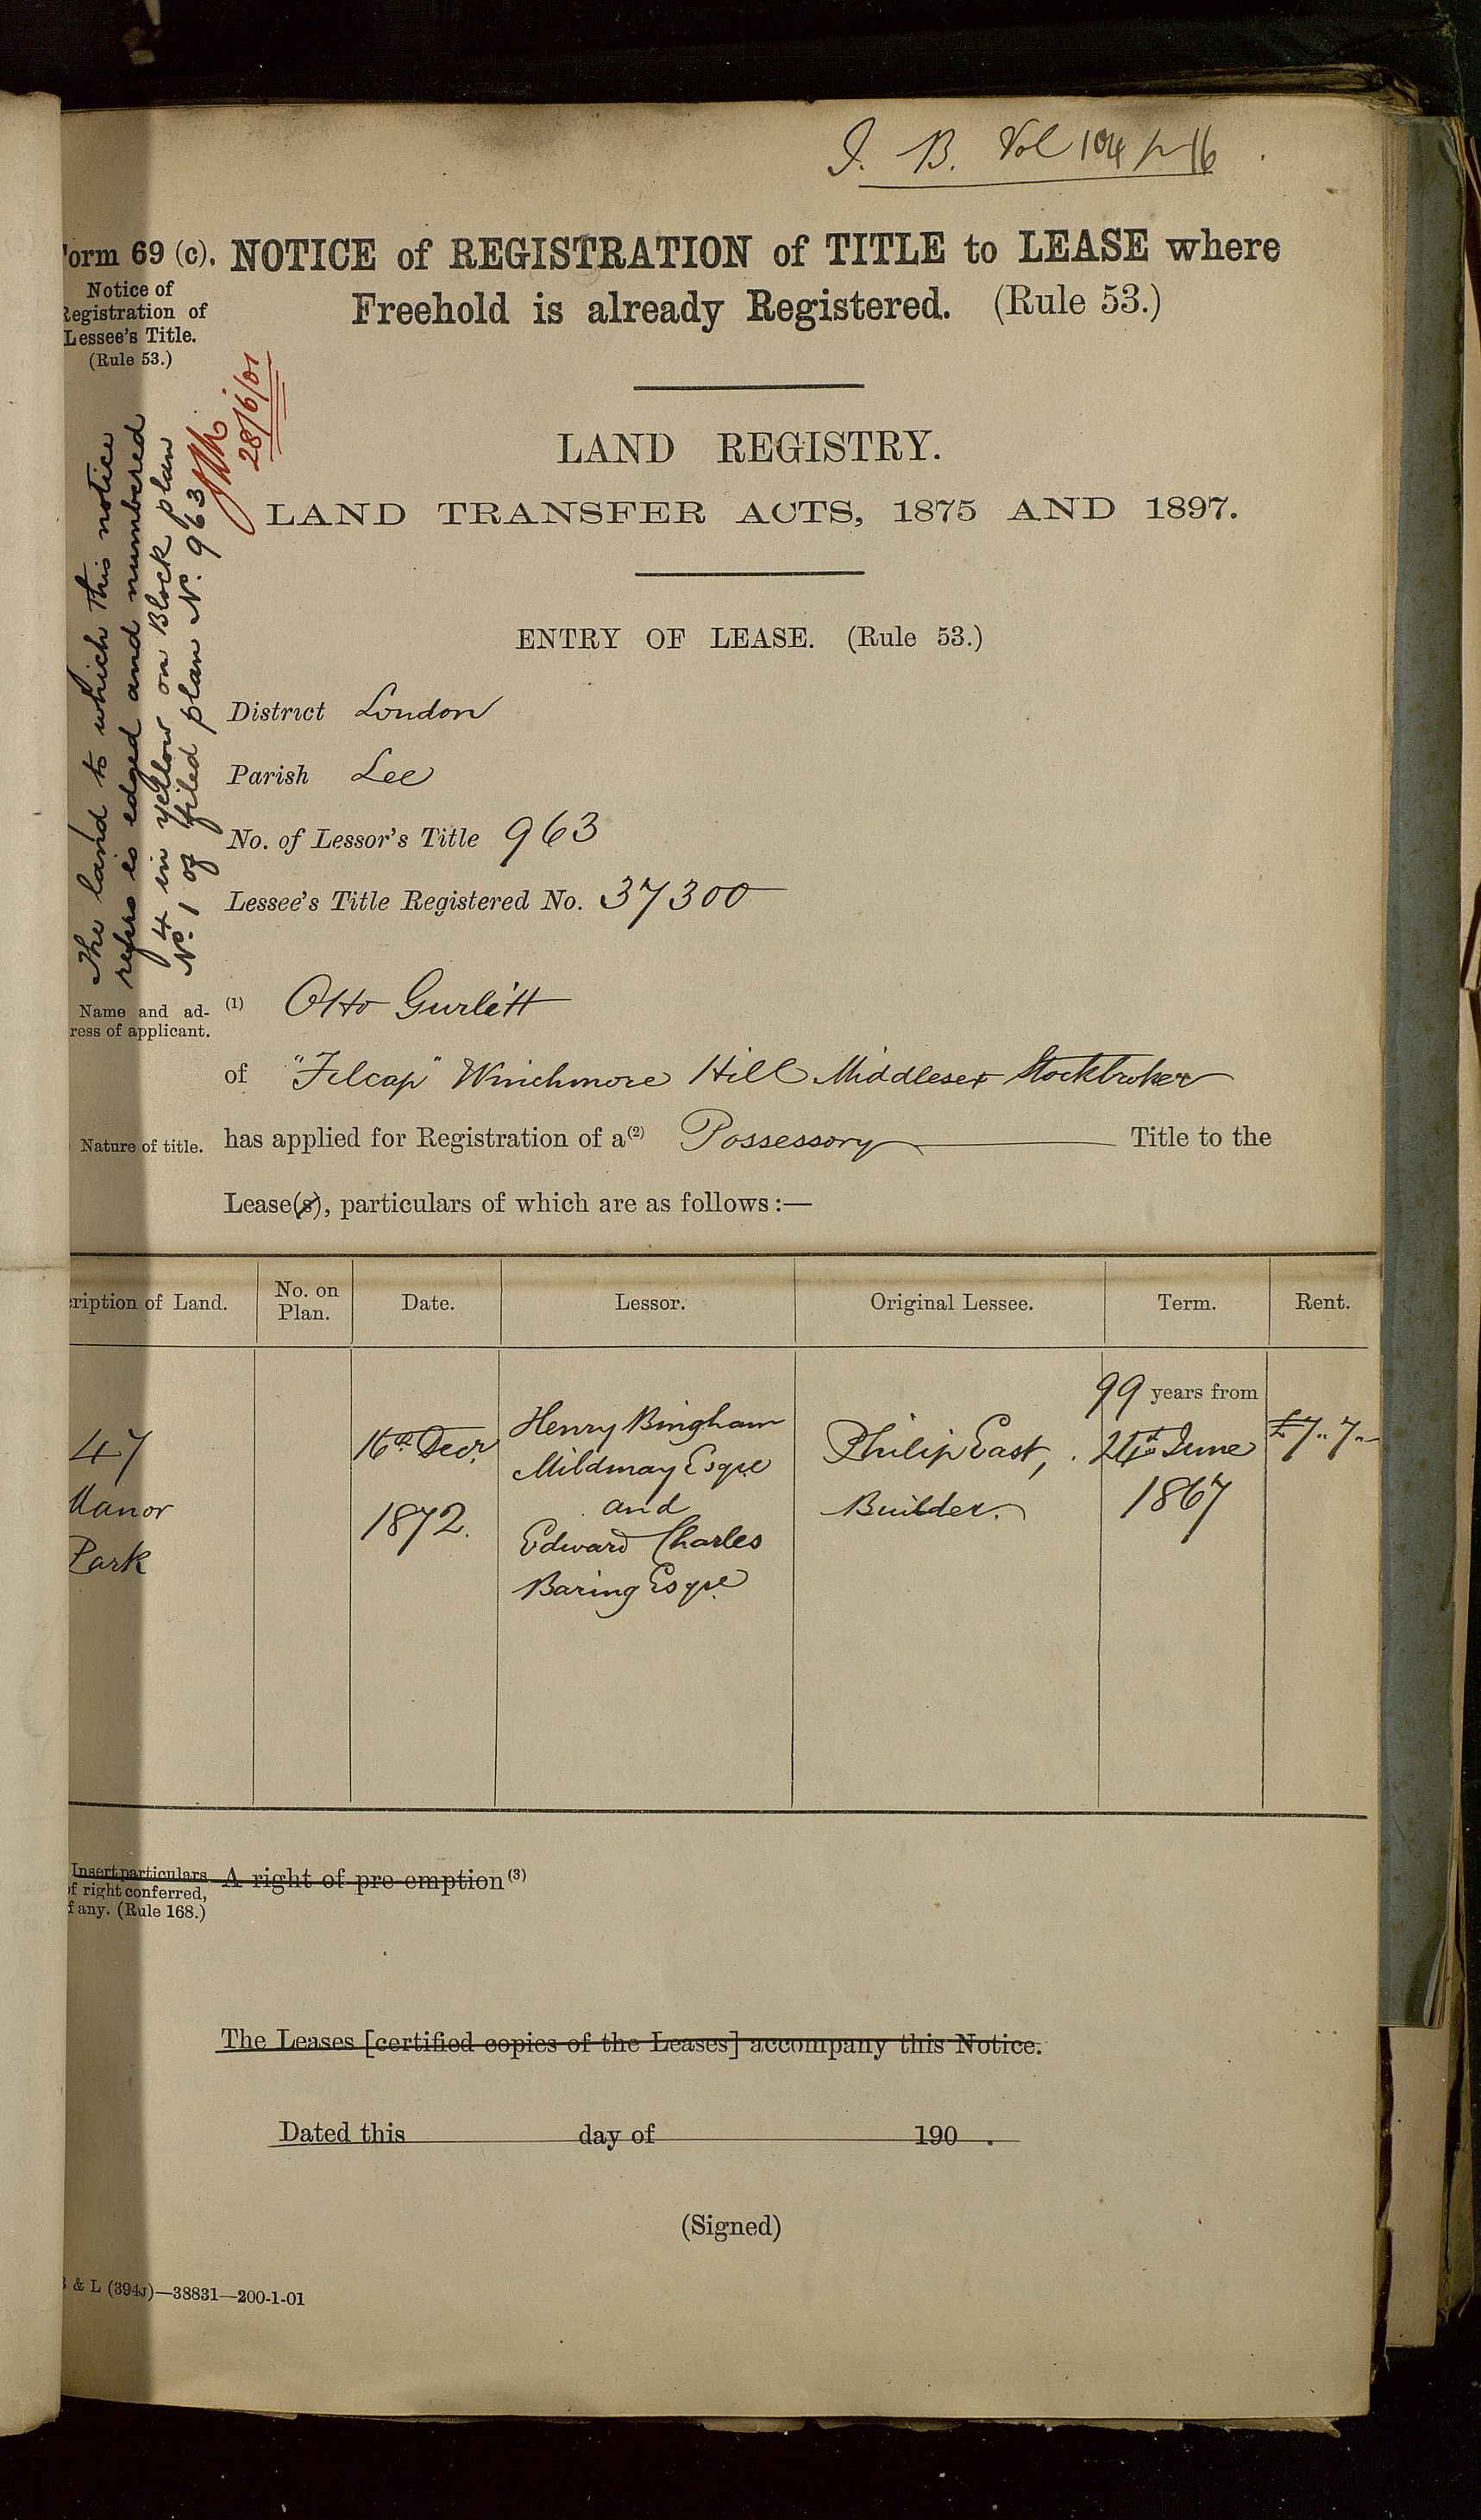 I. B. Vol 104 p 16
orm 69 (c).
NOTICE of REGISTRATION of TITLE to LEASE where
Freehold is already Registered. (Rule 53.)
Notice of
Registration of
Lessee's Title.
(Rule 53.)
28/6/01
The land to which this notice
refers is edged and numbered
4 in yellow on Block plan
No. 1 of filed plan No. 963
LAND REGISTRY.
LAND TRANSFER ACTS, 1875 AND 1897.
ENTRY OF LEASE. (Rule 53.)
District London
Parish Lee
No. of Lessor's Title 963
Lessee's Title Registered No. 37300
Name and ad-
ress of applicant.
(1) Otto Gurlitt
of "Filcap" Winchmore Hill Middlesex Stockbroker
Nature of title.
has applied for Registration of a (2) Possessory Title to the
Lease(s), particulars of which are as follows :—
cription of Land. No. on Plan. Date. Lessor. Original Lessee. Term. Rent.
47
Manor
Park
16th Decr.
1872.
Henry Bingham
Mildmay Esqre
and
Edward Charles
Baring Esqre
Philip East,
Builder.
99 years from
24th June
1867
£7..7..-
Insert particulars
of right conferred,
f any. (Rule 168.)
A right of pre-emption (3)
The Leases [certified copies of the Leases] accompany this Notice.
Dated this day of 190 .
(Signed)
& L (394J)—38831—200-1-01